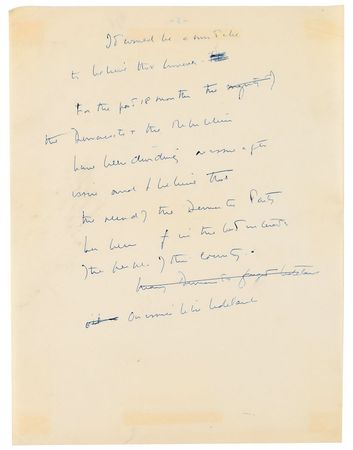 -2-
It would be a mistake
to believe this however.
For the past 18 months the
the Democrats & the Republicans
have been dividing on issue after
issue and I believe that
the record of the Democratic Party
has been in the best interests
of the people of the country.
On issues like